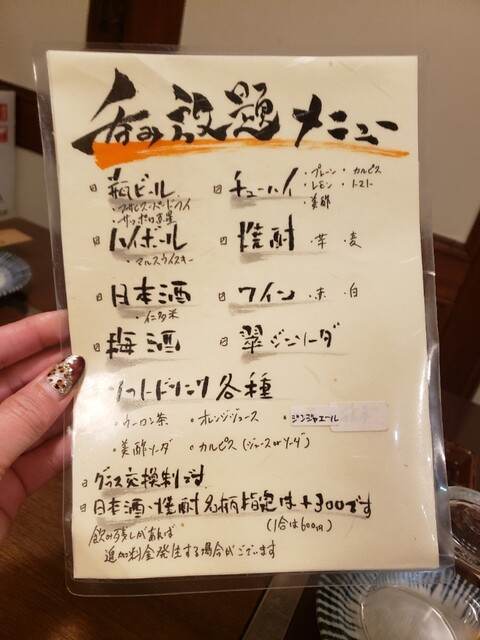 呑み放題メニュー
瓶ビール
・アサヒスーパードライ
・サッポロ黒星
チューハイ ・プレーン ・カルピス
・レモン ・トマト
・美酢
ハイボール
・マルスウイスキー
焼酎 ・芋 ・麦
日本酒
・仁多米
ワイン ・赤 ・白
梅酒
翠ジンソーダ
ソフトドリンク各種
・ウーロン茶 ・オレンジジュース ・ジンジャエール
・美酢ソーダ ・カルピス(ジュースorソーダ)
グラス交換制です
日本酒・焼酎名柄指定は+300です
(1合は600円)
飲み残しがあれば
追加料金発生する場合がございます